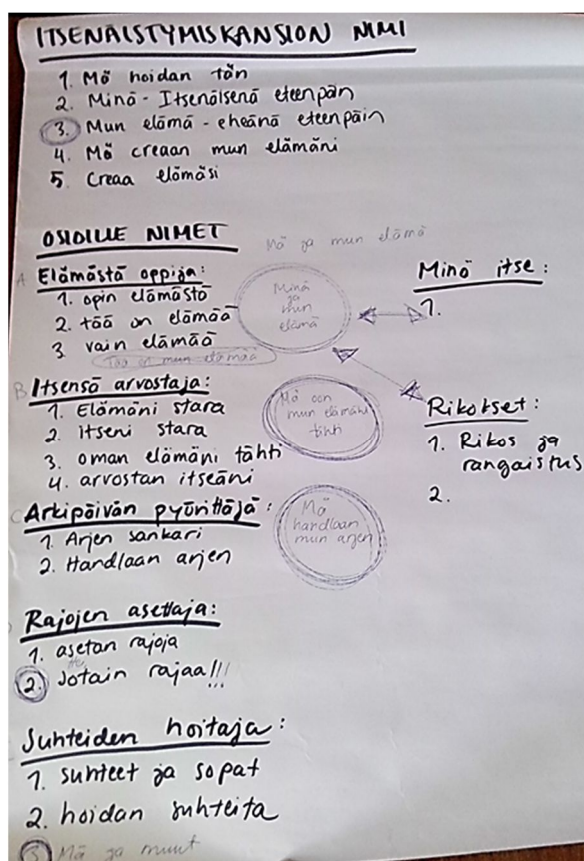 ITSENÄISTYMISKANSION NIMI
1. Mä hoidan tän
2. Minä - Itsenäisenä eteenpäin
3. Mun elämä - eheänä eteenpäin
4. Mä creaan mun elämäni
5. Creaa elämäsi
OSIOILLE NIMET
Mä ja mun elämä
A Elämästä oppija:
1. opin elämästä
2. tää on elämää
3. vain elämää
Tää on mun elämää
Minä
ja
mun
elämä
Minä itse:
1.
B Itsensä arvostaja:
1. Elämäni stara
2. itseni stara
3. oman elämäni tähti
4. arvostan itseäni
Mä oon
mun elämäni
tähti
Rikokset:
1. Rikos ja
rangaistus
2.
C Arkipäivän pyörittäjä:
1. Arjen sankari
2. Handlaan arjen
Mä
handlaan
mun arjen
Rajojen asettaja:
1. asetan rajoja
2. Jotain rajaa!!!
Suhteiden hoitaja:
1. suhteet ja sopat
2. hoidan suhteita
3. Mä ja muut